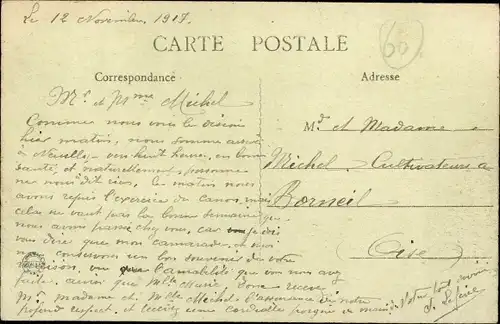 Le 12 Novembre 1917.
60
CARTE POSTALE
Correspondance
Adresse
Mr et Mme Michel
Comme nous
hier matin, nous somme
à Neuilly - huit heure, en bon
santé, et naturellement, personne
ne nous dit rien, le matin nous
avons repris l'exercice de canon, mais
cela ne vaut pas la bonne semaine que
nous avons passé chez vous, car je dois
vous dire que mon camarade et moi
nous conservons un bon souvenir de votre
maison, vu que l'amabilité que vous nous avez
faite, ainsi que Mlle Marie, donc recevez
Mr, madame et Mlle Michel l'assurance de notre
profond respect, et une cordialle poignée de main
de Notre tout
Md et Madame
Michel Cultivateurs à
Borneil
Oise